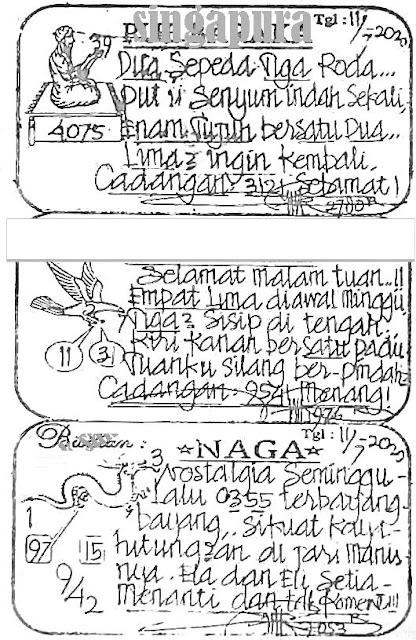 singapura
Tgl : 11/7-2020
Dua Sepeda Tiga Roda...
Put ii Senyum indah Sekali,
4075
Enam Tujuh bersatu Dua...
Lima2 ingin Kembali,
Cadangan 3124 Selamat!
2780
Selamat malam tuan..!!
Empat Lima diawal minggu
Tiga2 Sisip di tengah.
11 3
Kiri Kanan bersatu padu
Tuanku silang ber-pindah2
Cadangan 9541 Menang!
1976
Tgl : 11/7-2020
★NAGA★
3
Nostalgia Seminggu-
lalu 0355 terbayang-
1
bayang,. Sifuat Kayu-
97 15
hutungan di jari manis
9/42
nya. Ela dan Eli Setia-
Menanti dan Koment!!!
7053